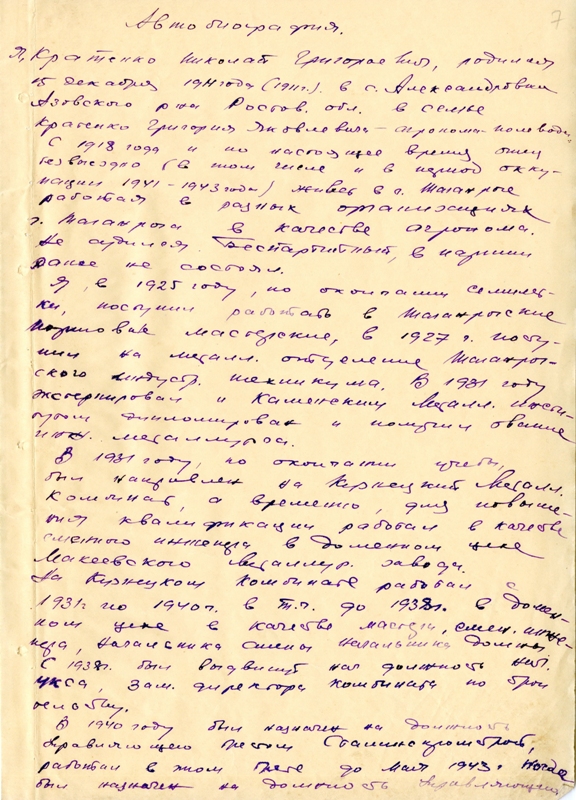 7
Автобиография.
Я, Кратенко Николай Григорьевич, родился
15 декабря 1911 года (1911 г.) в с. Александровка
Азовского р-на Ростов. обл. в семье
Кратенко Григория Яковлевича – агронома-полевода.
С 1918 года и по настоящее время отец
безвыездно (в том числе и в период окку-
пации 1941–1943 годы) живет в г. Таганроге
работая в разных организациях
г. Таганрога в качестве агронома.
Не судился. Беспартийный, в партии
ранее не состоял.
Я, в 1925 году, по окончании семилет-
ки, поступил работать в Таганрогские
мастерские, в 1927 г. посту-
пил на металл. отделение Таганрог-
ского индустр. техникума. В 1931 году
экстерном и Каменским Металл. инсти-
тутом дипломирован и получил звание
инж. металлурга.
В 1931 году, по окончании учебы,
был направлен на Кузнецкий Металл.
Комбинат, а временно, для повыше-
ния квалификации работал в качестве
сменного инженера в доменном цехе
Макеевского Металлург. завода.
На Кузнецком комбинате работал с
1931 г. по 1940 г. в т.ч. до 1938 г. в домен-
ном цехе в качестве мастера, смен. инже-
нера, начальника смены, начальника домны.
С 1938 г. был выдвинут на должность нач.
УКСа, зам. директора комбината по строи-
тельству.
В 1940 году был назначен на должность
управляющего трестом Сталинскпромстрой,
работал в этом тресте до Мая 1943 г. Когда
был назначен на должность управляющим